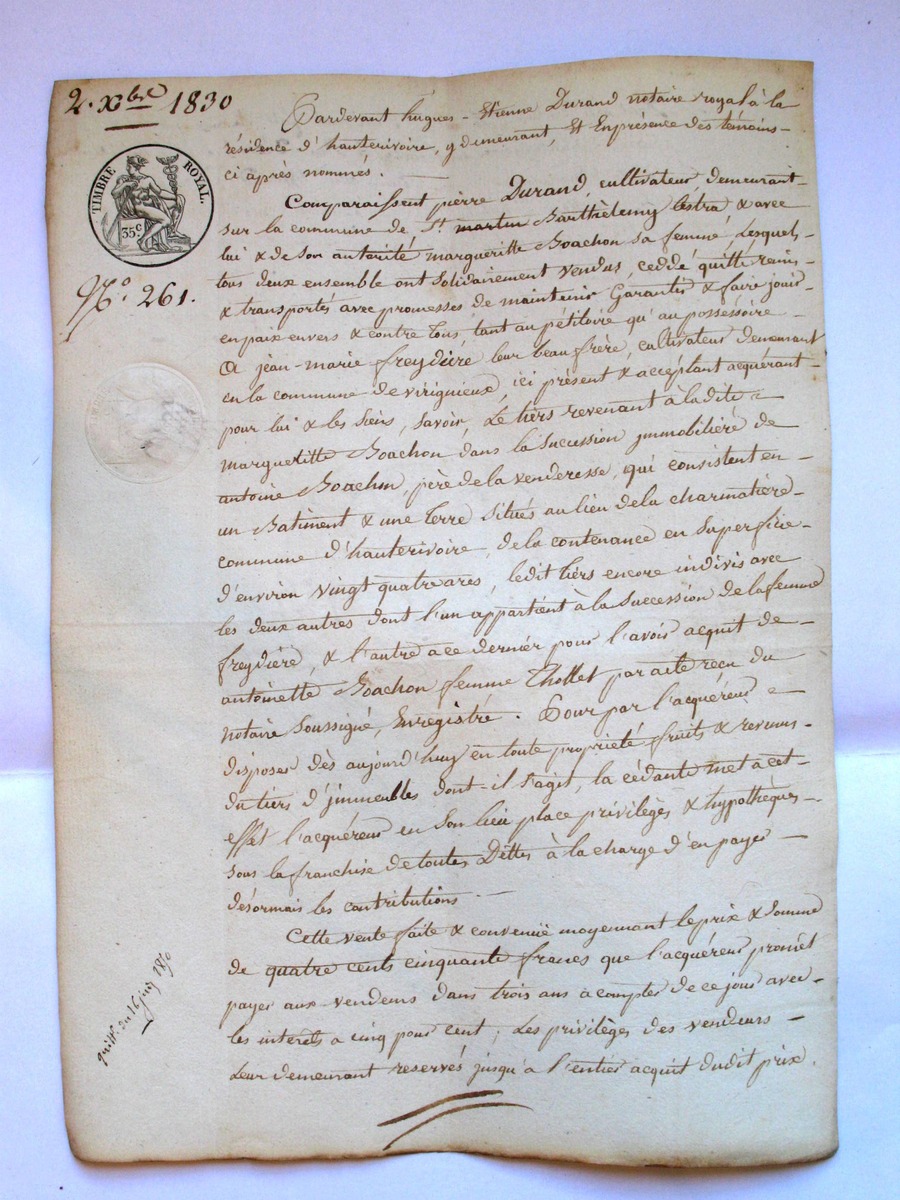 2. Xbre 1830
TIMBRE ROYAL.
35c
No. 261.
Pardevant hugues-Etienne Durand notaire royal à la
résidence d'hauterivoire, y demeurant, Et En présence des témoins
ci après nommés.
Comparaissent pierre Durand, cultivateur, demeurant
sur la commune de St. martin Barthèlemy lestra & avec
lui & de son autorité margueritte Boachon sa femme, Lesquels
tous deux ensemble ont Solidairement vendus, ceddé quitté remis
& transportés avec promesses de maintenir Garantir & faire jouir
en paix envers & contre tous, tant au pétitoire qu'au possessoire
A jean-marie freydière leur beau frère, cultivateur demeurant
en la commune de virignieux, ici présent & acceptant acquérant
pour lui & les Siens, Savoir, Le tiers revenant à la dite
margueritte Boachon dans la Sucession jmmobiliére de
antoine Boachon, père de la venderesse, qui consistent en
un Batiment & une Terre Situés au lieu de la charmatière
commune d'hauterivoire, de la contenance en Superficie
d'environ vingt quatre ares, ledit tiers encore indivis avec
les deux autres dont l'un appartient à la Sucession de la femme
freydière, & l'autre a ce dernier pour l'avoir acquit de
antoinette Boachon femme Thollet par acte reçu du
notaire Soussigné, Enregistré. Pour par l'acquéreur
disposer dès aujourd'huy en toute propriété fruits & revenus
du tiers d'jmmeubles dont-il s'agit, la cédante met à cet
effet l'acquéreur en Son lieu place privilèges & hypothèques
sous la franchise de toutes Dettes à la charge d'en payer
désormais les contributions.
Cette vente faite & convenue moyennant le prix & Somme
de quatre cents cinquante francs que l'acquéreur promet
payer aux vendeurs dans trois ans à compter de ce jour avec
les interets a cinq pour cent; Les privilèges des vendeurs
Leur demeurant reservés jusqu'a l'entier acquit dudit prix.
quitt. du 16